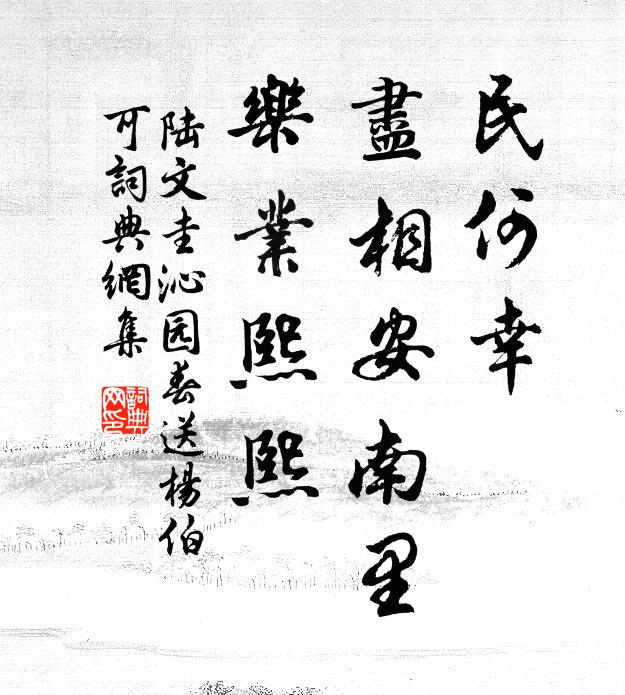 民何幸
盡相安南里
樂業熙熙
陆文圭沁园春送楊伯
可詞典網集
詞典网印